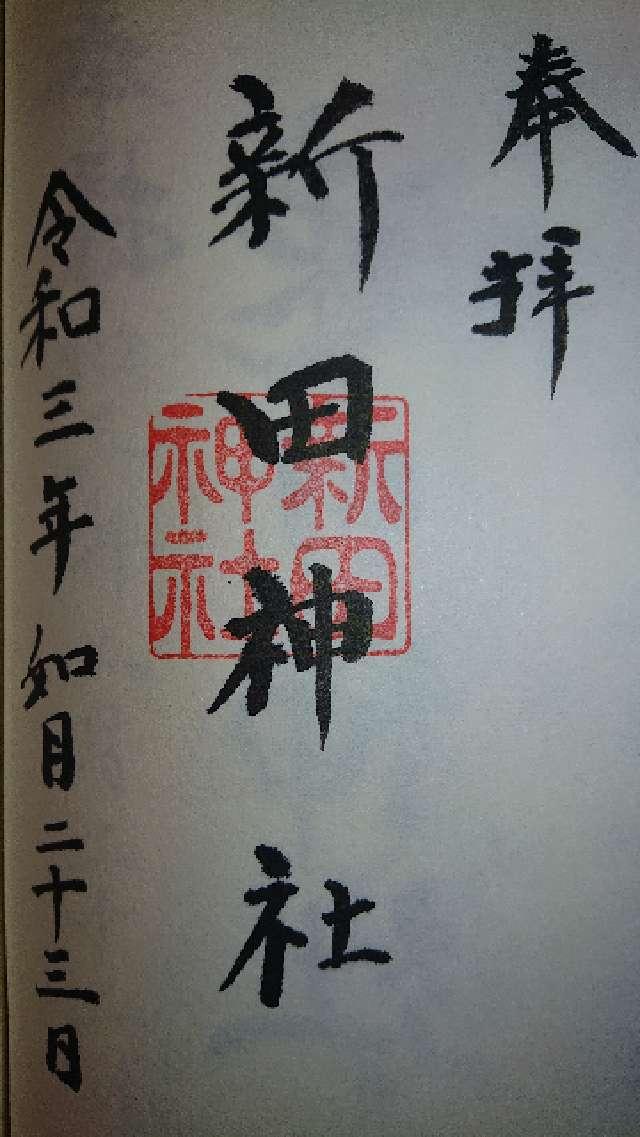 奉拝
新田神社
新田神社
令和三年如月二十三日